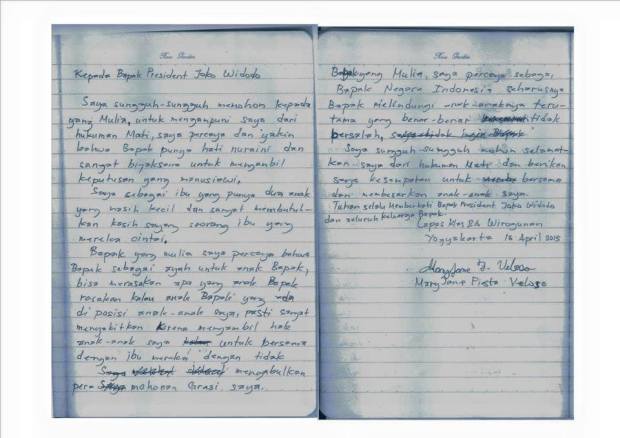 Kepada Bapak President Joko Widodo
Saya sungguh-sungguh memohon kepada
yang Mulia, untuk mengampuni saya dari
hukuman Mati, saya percaya dan yakin
bahwa Bapak punya hati nuraini dan
sangat bijaksana untuk mengambil
keputusan yang manusiawi.
Saya sebagai ibu yang punya dua anak
yang masih kecil dan sangat membutuh-
kan kasih sayang seorang ibu yang
mereka cintai.
Bapak yang mulia saya percaya bahwa
Bapak sebagai ayah untuk anak Bapak,
bisa merasakan apa yang anak Bapak
rasakan kalau anak Bapak yang ada
di posisi anak-anak saya, pasti sangat
menyakitkan karena mengambil hak
anak-anak saya untuk bersama
dengan ibu mereka dengan tidak
mengabulkan
permohonan Grasi saya.
Bapak yang Mulia, saya percaya sebagai
Bapak Negara Indonesia seharusnya
Bapak melindungi anak-anaknya teru-
tama yang benar-benar tidak
bersalah,
Saya sungguh-sungguh mohon selamat-
kan saya dari hukuman Mati dan berikan
saya kesempatan untuk bersama
dan membesarkan anak-anak saya.
Tuhan selalu Memberkati Bapak President Joko Widodo
dan seluruh keluarga Bapak.
Lapas Klas IIA Wirogunan
Yogyakarta 16 April 2015
Mary Jane F. Veloso
Mary Jane Fiesta Veloso